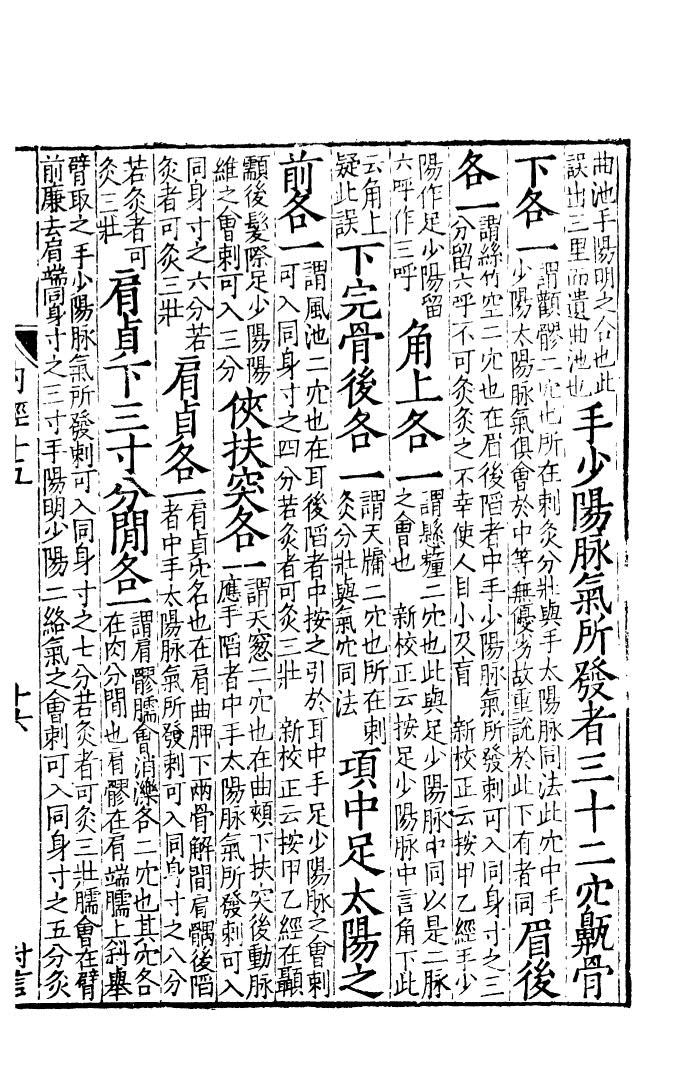 曲池手陽明之合也此
誤出三里而遺曲池也
手少陽脉氣所發者三十二穴鼽骨
下各一
謂顴髎二穴也所在刺灸分壯與手太陽脉同法此穴中手
少陽太陽脉氣俱會於中等無優劣故重說於此下有者同
眉後
各一
謂絲竹空二穴也在眉後陷者中手少陽脉氣所發刺可入同身寸之三
分留六呼不可灸灸之不幸使人目小及盲 新校正云按甲乙經手少
陽作足少陽留
六呼作三呼
角上各一
謂懸釐二穴也此與足少陽脉中同以是二脉
之會也 新校正云按足少陽脉中言角下此
云角上
疑此誤
下完骨後各一
謂天牖二穴也所在刺
灸分壯與氣穴同法
項中足太陽之
前各一
謂風池二穴也在耳後陷者中按之引於耳中手足少陽脉之會刺
可入同身寸之四分若灸者可灸三壯 新校正云按甲乙經在顳
顬後髮際足少陽陽
維之會刺可入三分
俠扶突各一
謂天窓二穴也在曲頰下扶突後動脉
應手陷者中手太陽脉氣所發刺可入
同身寸之六分若
灸者可灸三壯
肩貞各一
肩貞穴名也在肩曲胛下兩骨解間肩髃後陷
者中手太陽脉氣所發刺可入同身寸之八分
若灸者可
灸三壯
肩貞下三寸分閒各一
謂肩髎臑會消濼各二穴也其穴各
在肉分間也肩髎在肩端臑上斜舉
臂取之手少陽脉氣所發刺可入同身寸之七分若灸者可灸三壯臑會在臂
前廉去肩端同身寸之三寸手陽明少陽二絡氣之會刺可入同身寸之五分灸
內經十五
十六